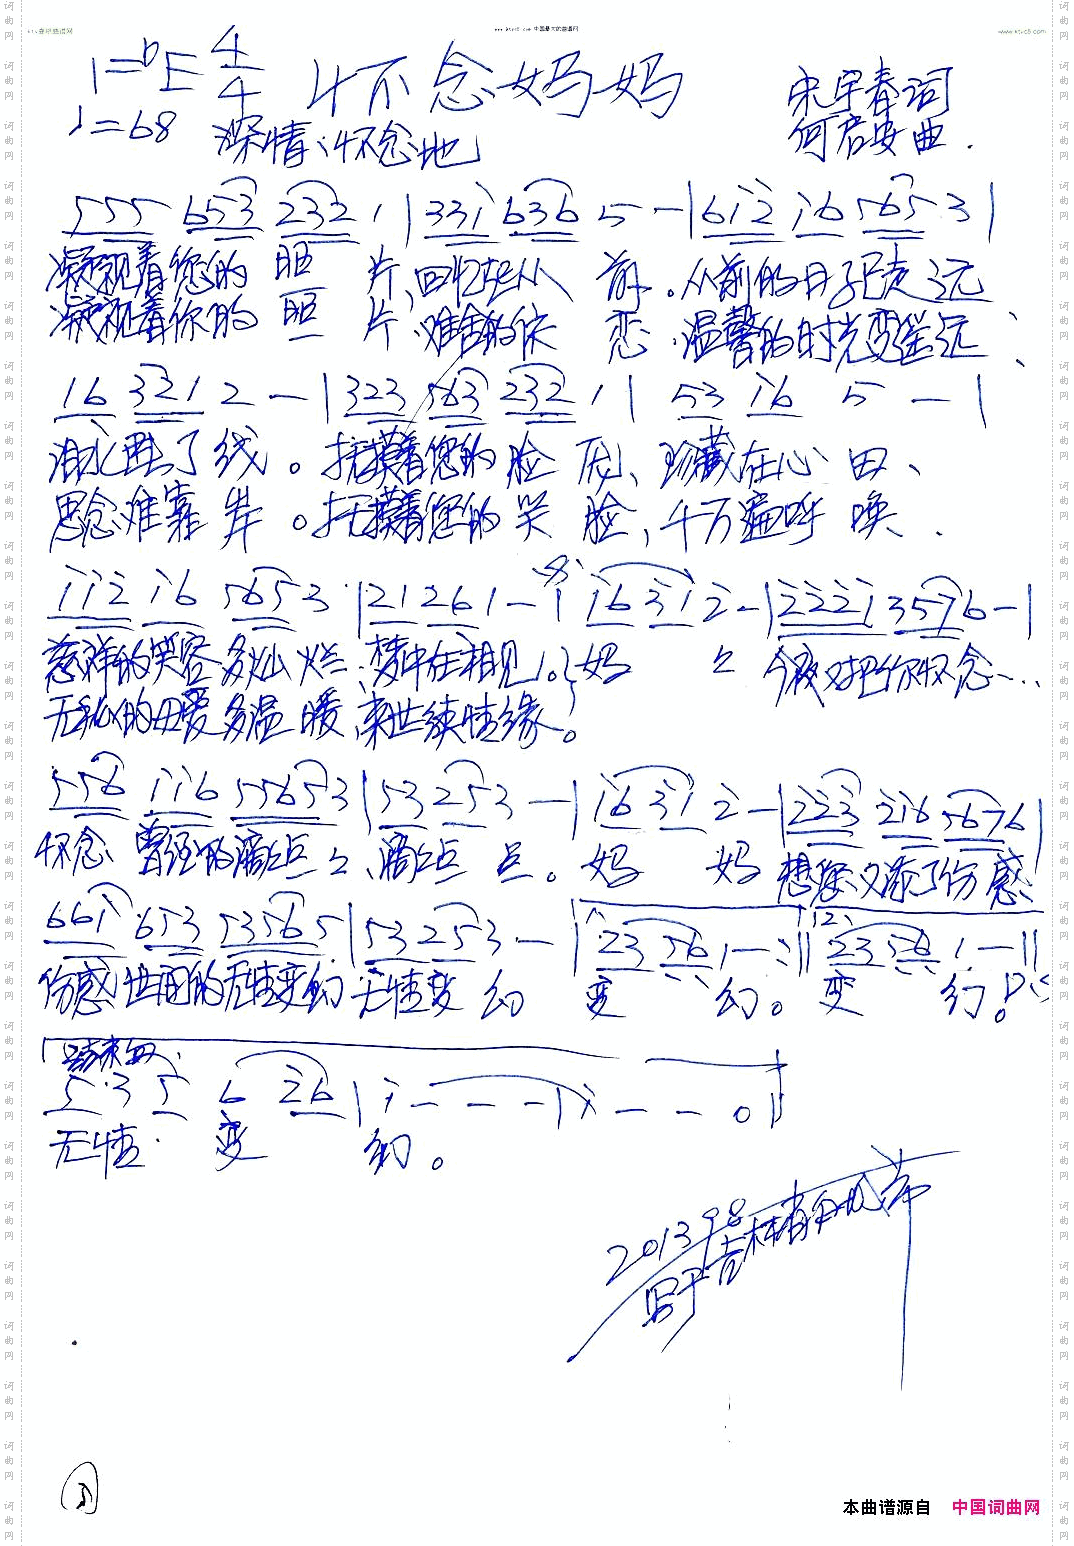 www.ktvc8.com 中国最大的曲谱网
www.ktvc8.com
1=bE 4/4 怀念妈妈
♩=68 深情、怀念地
宋宇春词
何启安曲
555 653 232 1 | 331 636 5 - | 612 16 5653 |
凝视着您的照片,回忆起从前。从前的日子已走远
凝视着你的照片,难舍的依恋.温馨的时光变遥远、
16 321 2 - | 323 563 232 1 | 53 16 5 - |
泪水甩了线。抚摸着您的脸庞、珍藏在心田、
思念难靠岸。抚摸着您的笑脸,千万遍呼唤.
112 16 5653 | 21 261 - | 16 31 2 - | 2221 3576 - |
慈祥的笑容多灿烂,梦中在相见。妈 今夜对把你怀念…
无私的母爱多温暖,来世续情缘。
556 116 55653 | 53 253 - | 16 31 2 - | 223 216 5676 |
怀念 曾经的滴点 滴点点。妈 妈 想您又添了伤感
661 653 53565 | 53 253 - | 23 56 1 - :|| 23 56 1 - ||
伤感 世间的无情变幻 无情变幻 变幻。变幻。D.S
结束句
5·3 5 6 26 | 1 - - - | 1 - - 0 ||
无情 变 幻。
2013 9 8
写于吉林省
本曲谱源自 中国词曲网